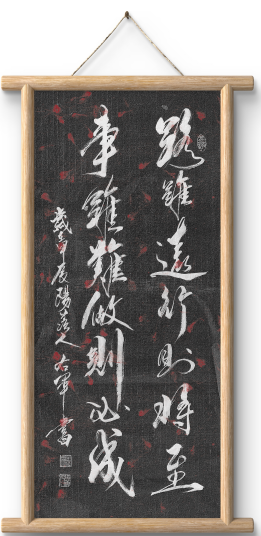 路雖遠行則將至
事雖難做則必成
歲 辰陽春 右軍書